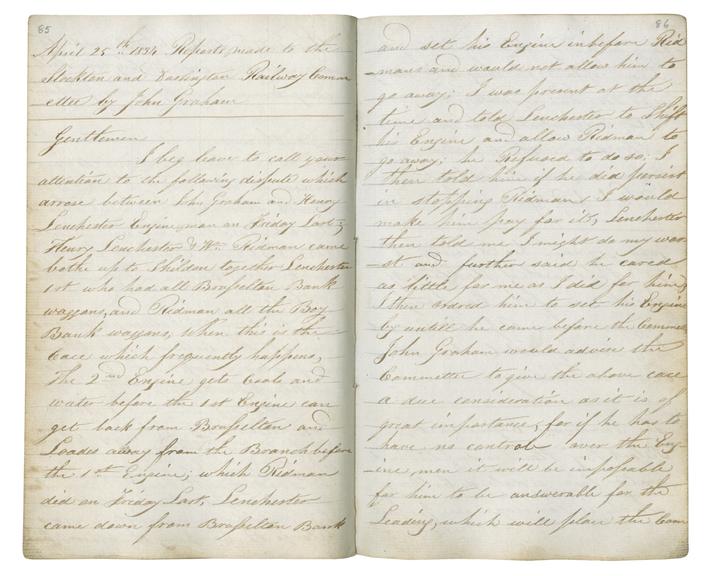 85
April 25th 1834 Reports made to the
Stockton and Darlington Railway Comm
ettee by John Graham
Gentlemen
I beg leave to call your
attention to the following dispute which
arose between John Graham and Henry
Lenchester Engine man on Friday Last;
Henry Lenchester & Wm Ridman came
bothe up to Shildon together Lenchester
1st who had all Brusselton Bank
waggons, and Ridman all the Boy
Bank waggons, when this is the
Cace which frequently happens,
The 2nd Engine gets Coals and
water before the 1st Engine can
get back from Brusselton and
Loades away from the Branch before
the 1st Engine; which Ridman
did on Friday Last, Lenchester
came down from Brusselton Bank
86
and set his Engine inbefore Rid
mans and would not allow him to
go away; I was present at the
time and told Lenchester to Shift
his Engine and allow Ridman to
go away; he Refused to do so; I
then told him if he did persist
in stopping Ridman, I would
make him pay for it, Lenchester
then told me I might do my wor
st and further said he cared
as little for me as I did for him,
I then ordred him to set his Engine
by untill he came before the Comme
John Graham would advise the
Committee to give the above cace
a due consideration as it is of
great importance, for if he has to
have no control over the Eng
ine men it will be impossable
for him to be answerable for the
Leading, which will place the Com